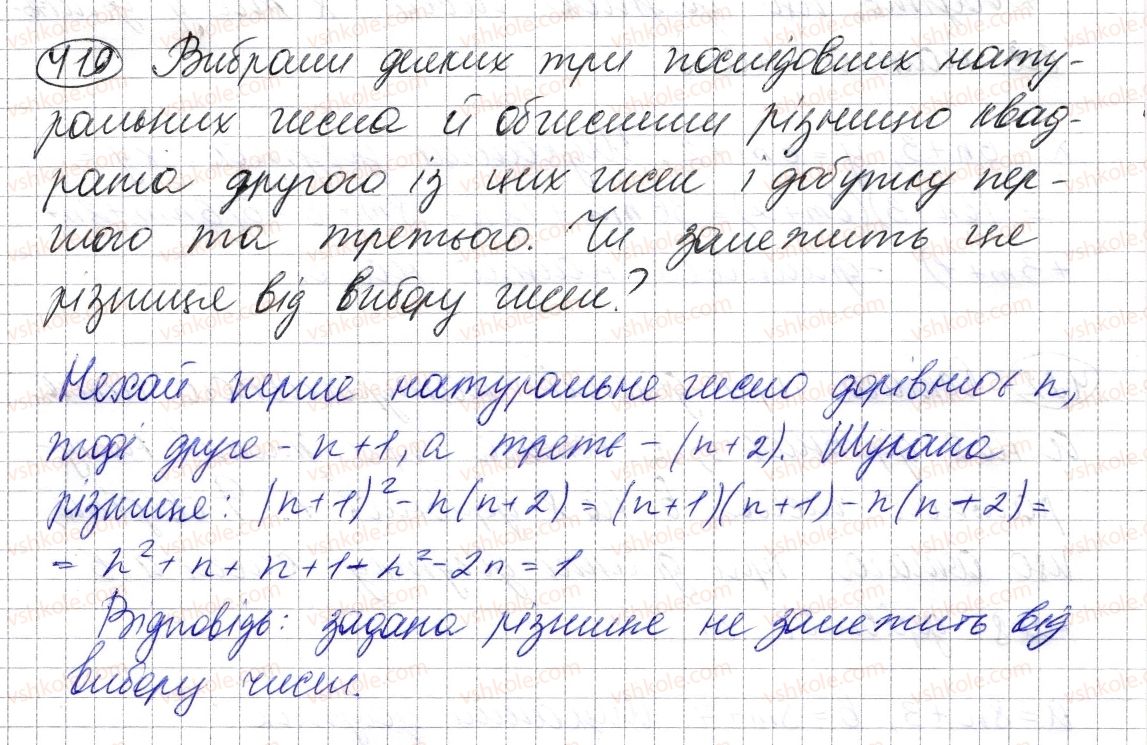 419 Вибрали деяких три послідовних нату-
ральних числа й обчислили різницю квад-
рата другого із цих чисел і добутку пер-
шого та третього. Чи залежить ця
різниця від вибору чисел?
Нехай перше натуральне число дорівнює n,
тоді друге - n+1, а третє - (n+2). Шукана
різниця: (n+1)² - n(n+2) = (n+1)(n+1) - n(n+2) =
= n² + n + n + 1 - n² - 2n = 1
Відповідь: задана різниця не залежить від
вибору чисел.